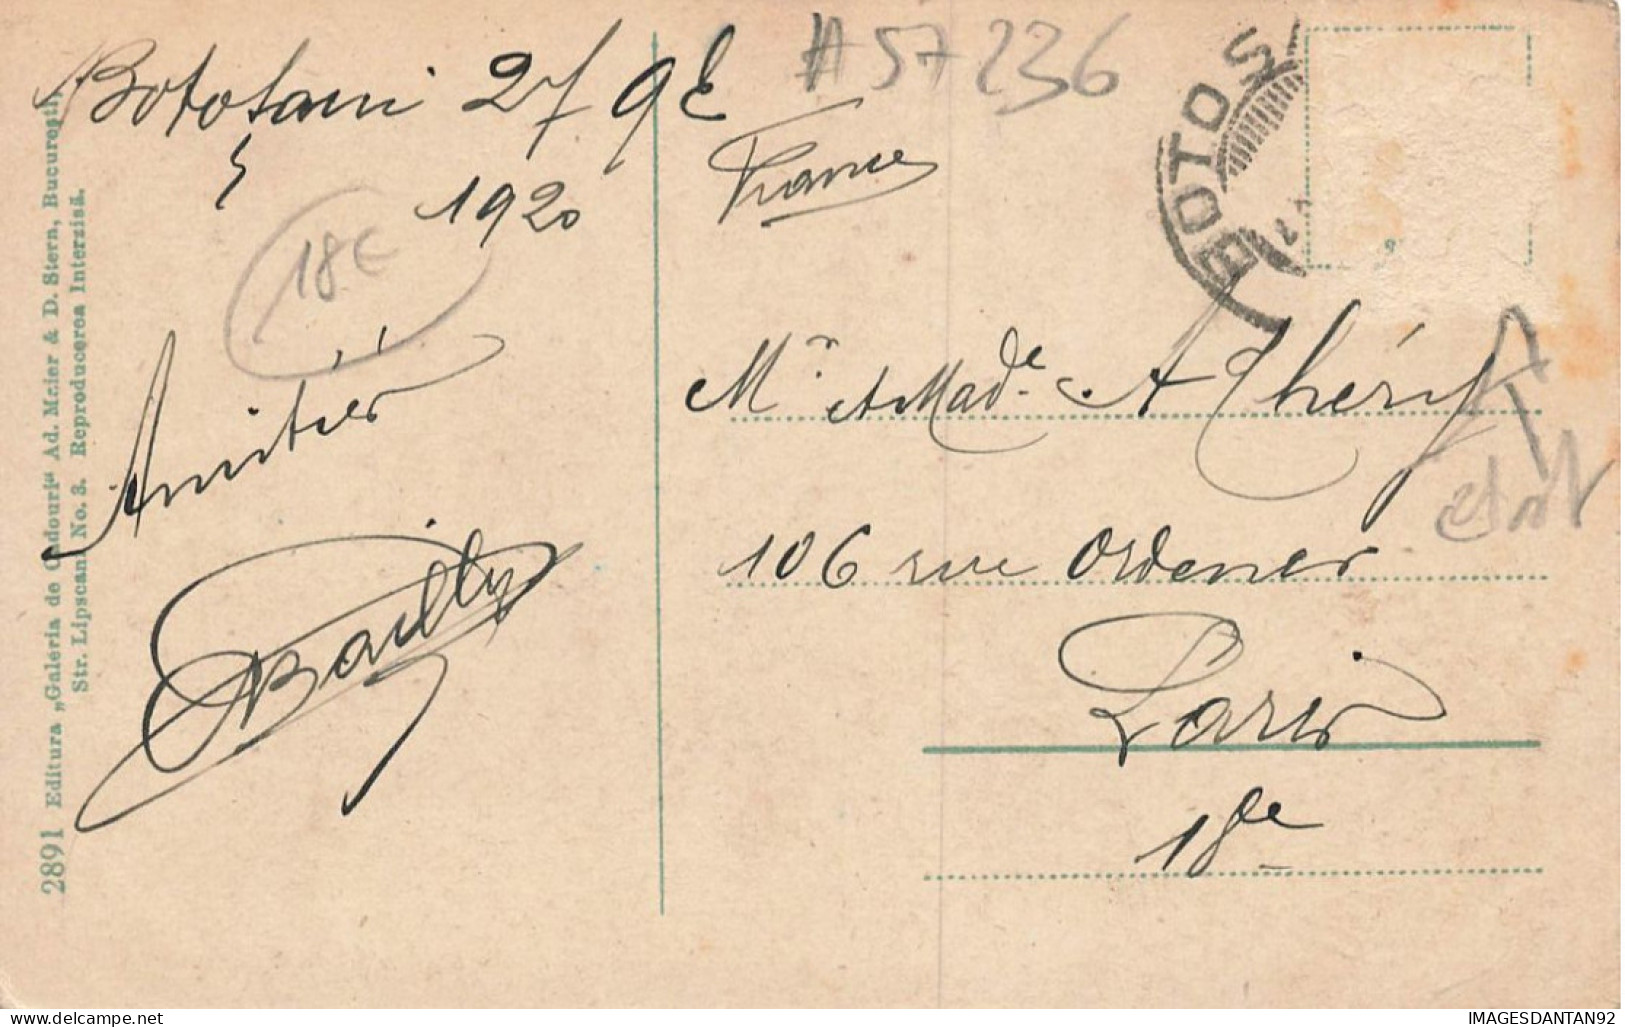 Botoşani 27 9E
1920
18€
Amitiés
Bailly
2891 Editura „Galeria de Cadouri“ Ad. Maier & D. Stern, Bucureşti,
Str. Lipscani No. 3. Reproducerea Interzisă.
A57236
France
BOTOS
Mr. et Made. A Théry
106 rue Ordener
Paris
18e
IMAGESDANTAN92